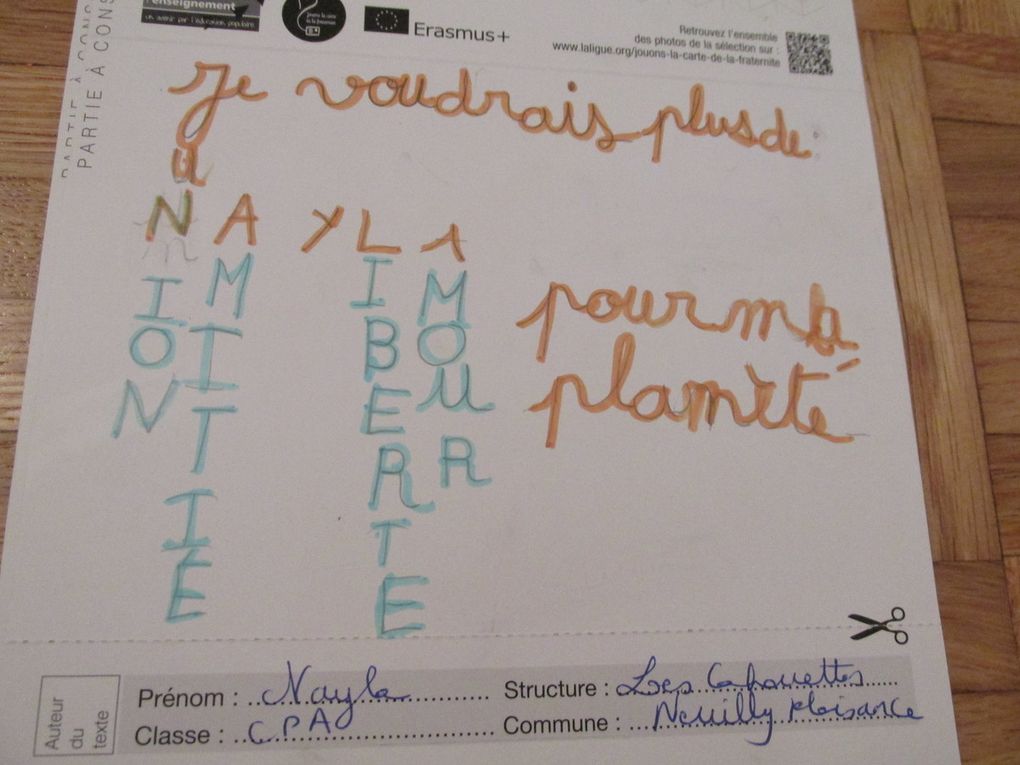 l'enseignement
un avenir par l'éducation populaire
Erasmus+
Retrouvez l'ensemble
des photos de la sélection sur :
www.laligue.org/jouons-la-carte-de-la-fraternite
PARTIE À CONS
PARTIE À CONS
Je voudrais plus de
U
N A Y L A
I M I M
O I B O
N T E U
I R R
É T
E
pour ma
planèté
Auteur
du
texte
Prénom : Nayla
Structure : Les Cahouettes
Classe : CPA
Commune : Neuilly plaisance